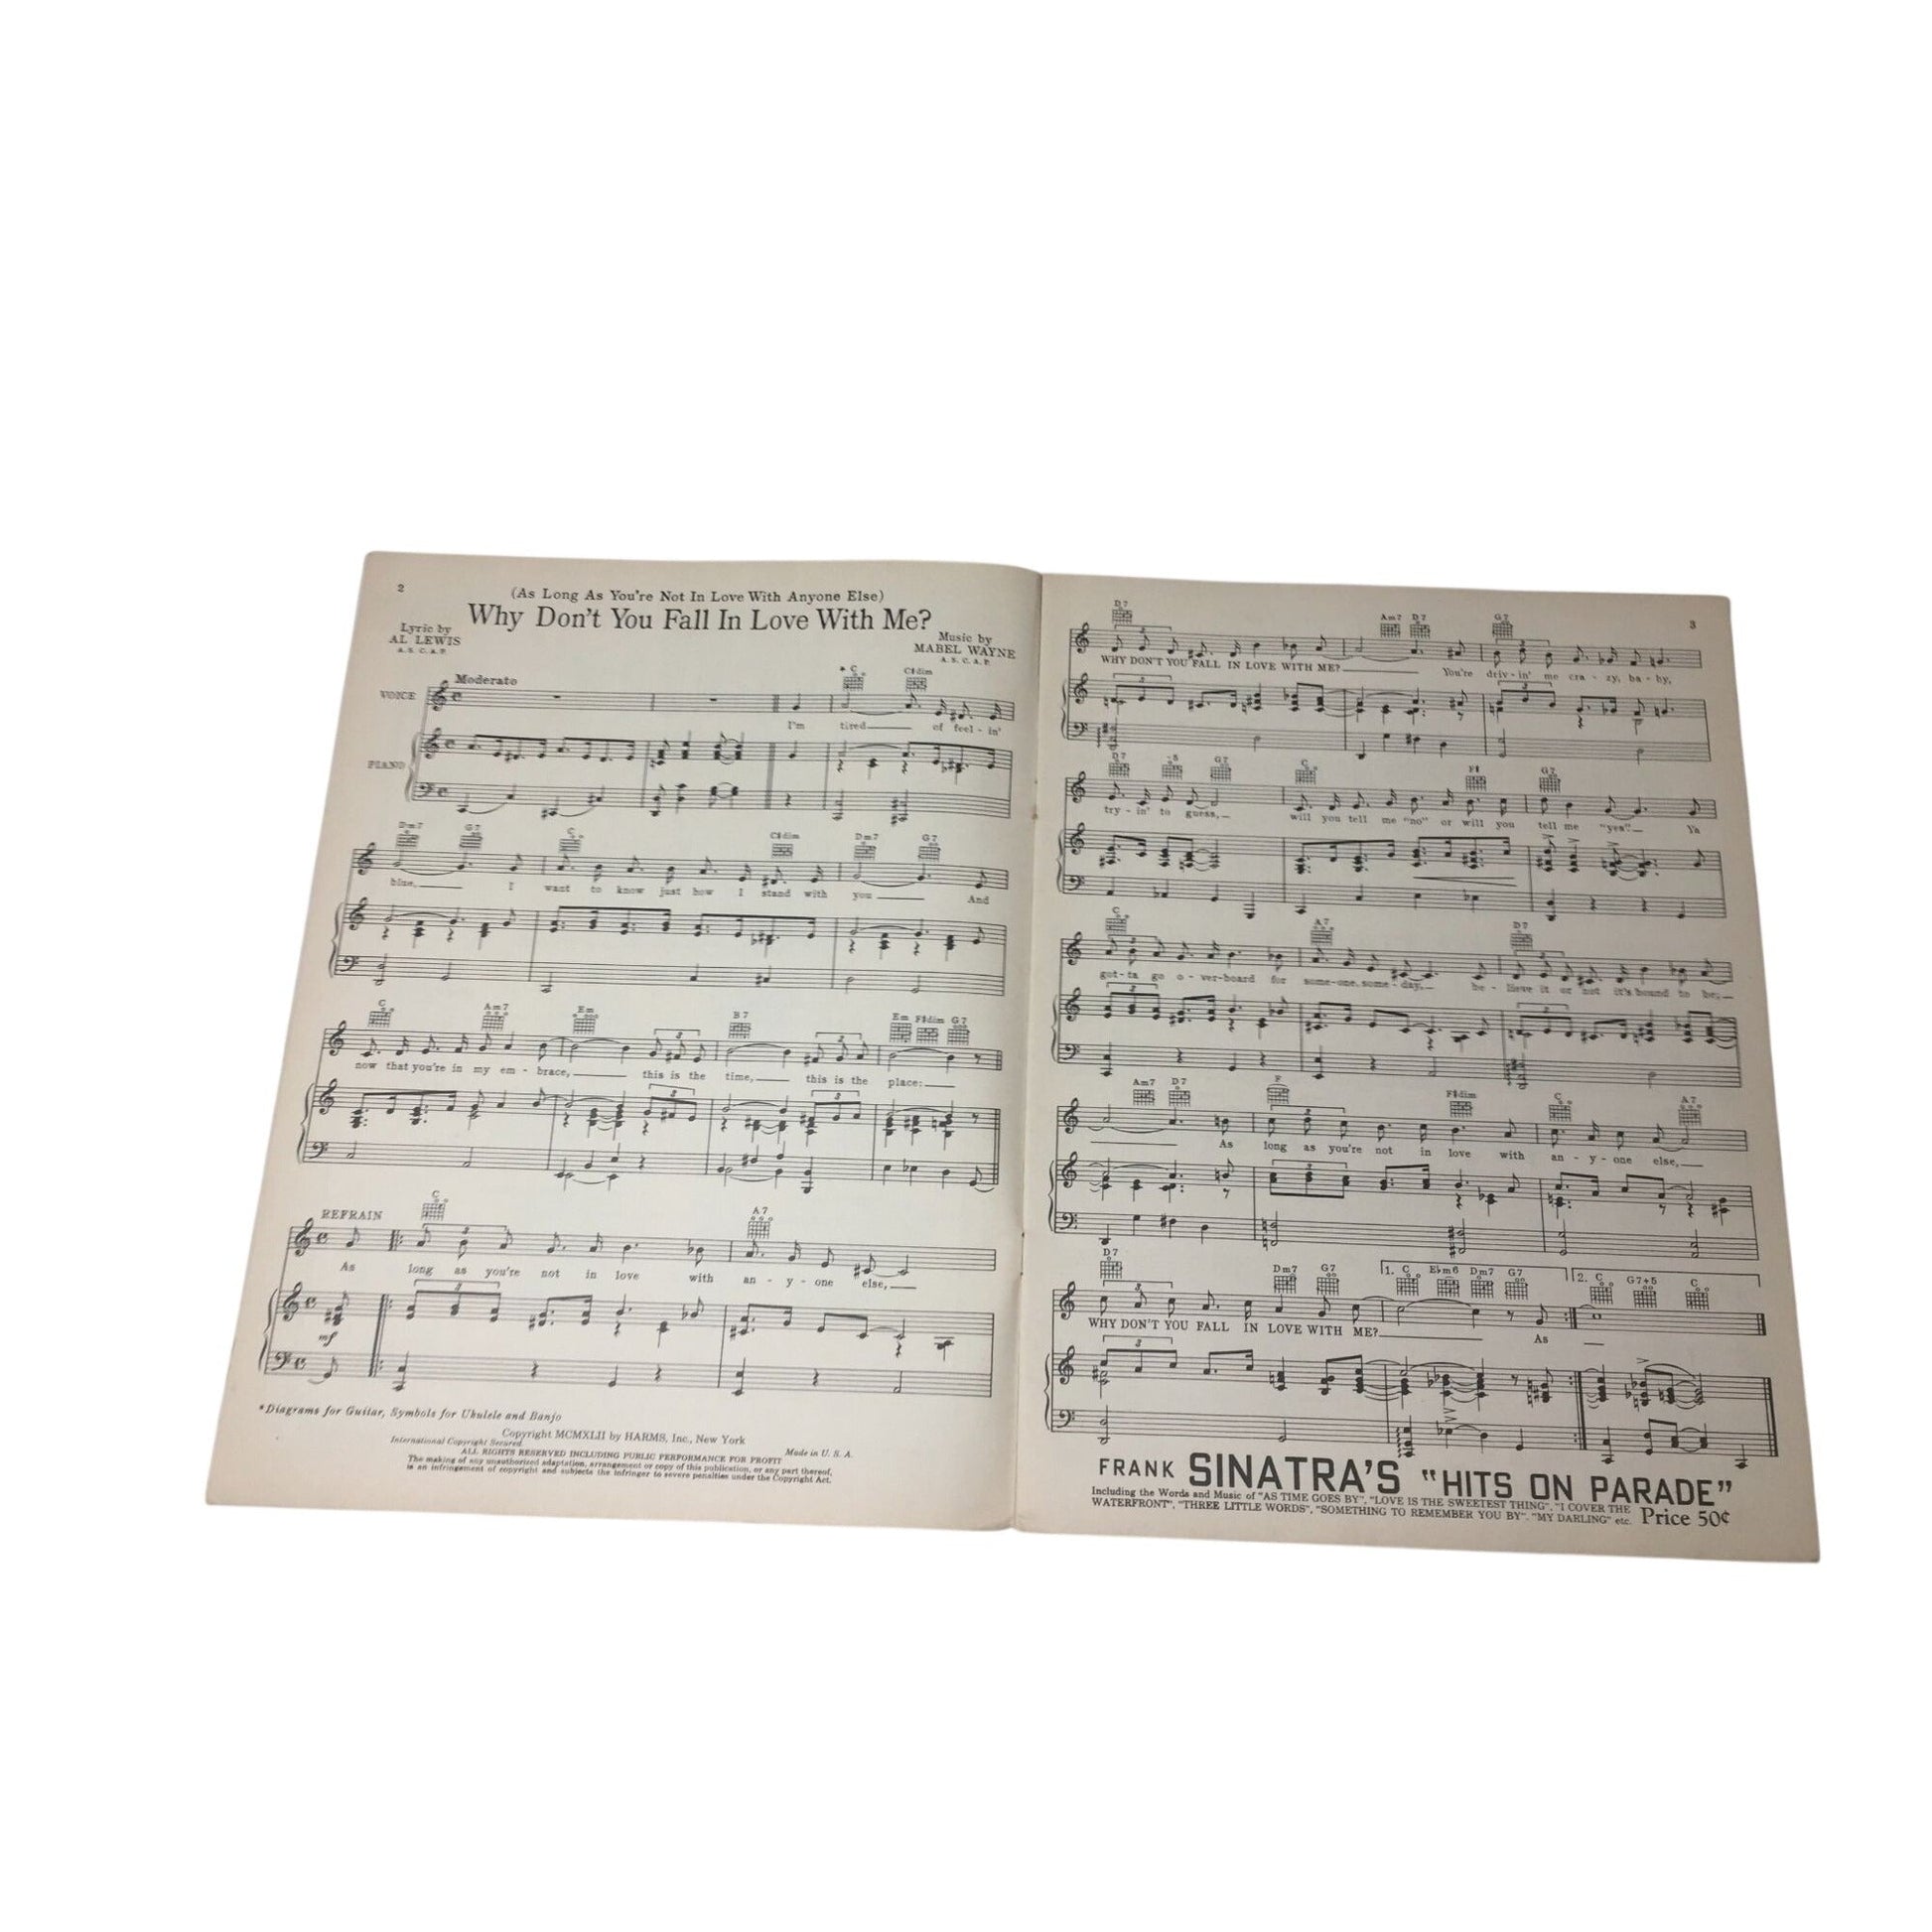 2
(As Long As You're Not In Love With Anyone Else)
Why Don't You Fall In Love With Me?
Lyric by
AL LEWIS
A. S. C. A. P.
Music by
MABEL WAYNE
A. S. C. A. P.
Moderato
* C C♯dim
VOICE
I'm tired of feel - in'
PIANO
Dm7 G7 C C♯dim Dm7 G7
blue, I want to know just how I stand with you And
C Am7 Em B7 Em F♯dim G7
3 3
now that you're in my em - brace, this is the time, this is the place:
3 3
REFRAIN
C A7
3
As long as you're not in love with an - y - one else,
3
mf
*Diagrams for Guitar, Symbols for Ukulele and Banjo
Copyright MCMXLII by HARMS, Inc., New York
International Copyright Secured
Made in U. S. A.
ALL RIGHTS RESERVED INCLUDING PUBLIC PERFORMANCE FOR PROFIT
The making of any unauthorized adaptation, arrangement or copy of this publication, or any part thereof,
is an infringement of copyright and subjects the infringer to severe penalties under the Copyright Act.
3
D7 Am7 D7 G7
WHY DON'T YOU FALL IN LOVE WITH ME? You're driv - in' me cra - zy, ba - by,
D7 G7 C G7
try - in' to guess, will you tell me "no" or will you tell me "yes". Ya
C A7 D7
got - ta go o - ver-board for some-one, some - day, be - lieve it or not it's bound to be;
Am7 D7 F F♯dim C A7
As long as you're not in love with an - y - one else,
D7 Dm7 G7 1. C E♭m6 Dm7 G7 2. C G7+5 C
WHY DON'T YOU FALL IN LOVE WITH ME? As
FRANK SINATRA'S "HITS ON PARADE"
Including the Words and Music of "AS TIME GOES BY", "LOVE IS THE SWEETEST THING", "I COVER THE
WATERFRONT", "THREE LITTLE WORDS", "SOMETHING TO REMEMBER YOU BY", "MY DARLING" etc. Price 50¢